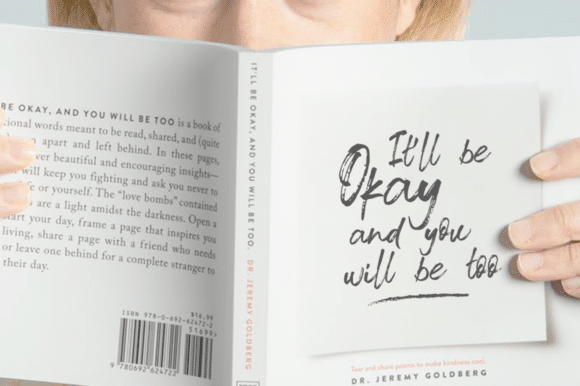 BE OKAY, AND YOU WILL BE TOO is a book of
tional words meant to be read, shared, and (quite
apart and left behind. In these pages,
ver beautiful and encouraging insights—
will keep you fighting and ask you never to
fe or yourself. The “love bombs” contained
are a light amidst the darkness. Open a
start your day, frame a page that inspires you
living, share a page with a friend who needs
or leave one behind for a complete stranger to
their day.
$16.99
ISBN 978-0-692-62472-2
51699>
9 780692 624722
IT'LL BE OKAY, AND YOU WILL BE TOO. DR. JEREMY GOLDBERG
It'll be
Okay
and you
will be too
Tear and share poems to make kindness cool.
DR. JEREMY GOLDBERG